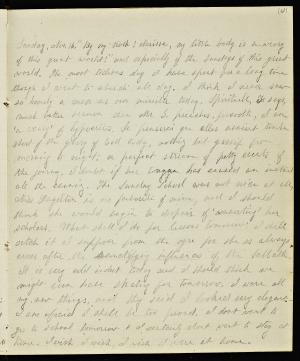 (4)
Sunday, Nov. 16th "By my troth! Nerissa, my little body is aweary
of this great world!" and especially of the Sundays of this great
world. The most tedious day I have spent for a long time
though I went to church all day. I think I never saw
so homely a man as our minister today. Spiritually, he says,
much better sermon than Mr. S. preaches, presently, I am
a crowd of hypocrites. To preserve an utter ancient
short of the glory of God today, nothing but gossip from
morning to night, a perfect stream of petty events of
the joining. I doubt if her tongue has ceased an instant
all the evening. The Sunday School was not nice at all,
while Singleton is no favourite of mine, and I should
think she would begin to despair of "converting" her
scholars. What shall I do for lessons tomorrow? I shall
catch it I suppose from the ogre for she is always
cross after the influences of the Sabbath.
It is very cold indeed today and I should think we
might even have skating for tomorrow. I wore all
my new things, and they said I looked very elegant.
I am afraid I shall be too proud. I don't want to
go to school tomorrow & I certainly don't want to stay at
home. I wish I wish, I wish I were at home.